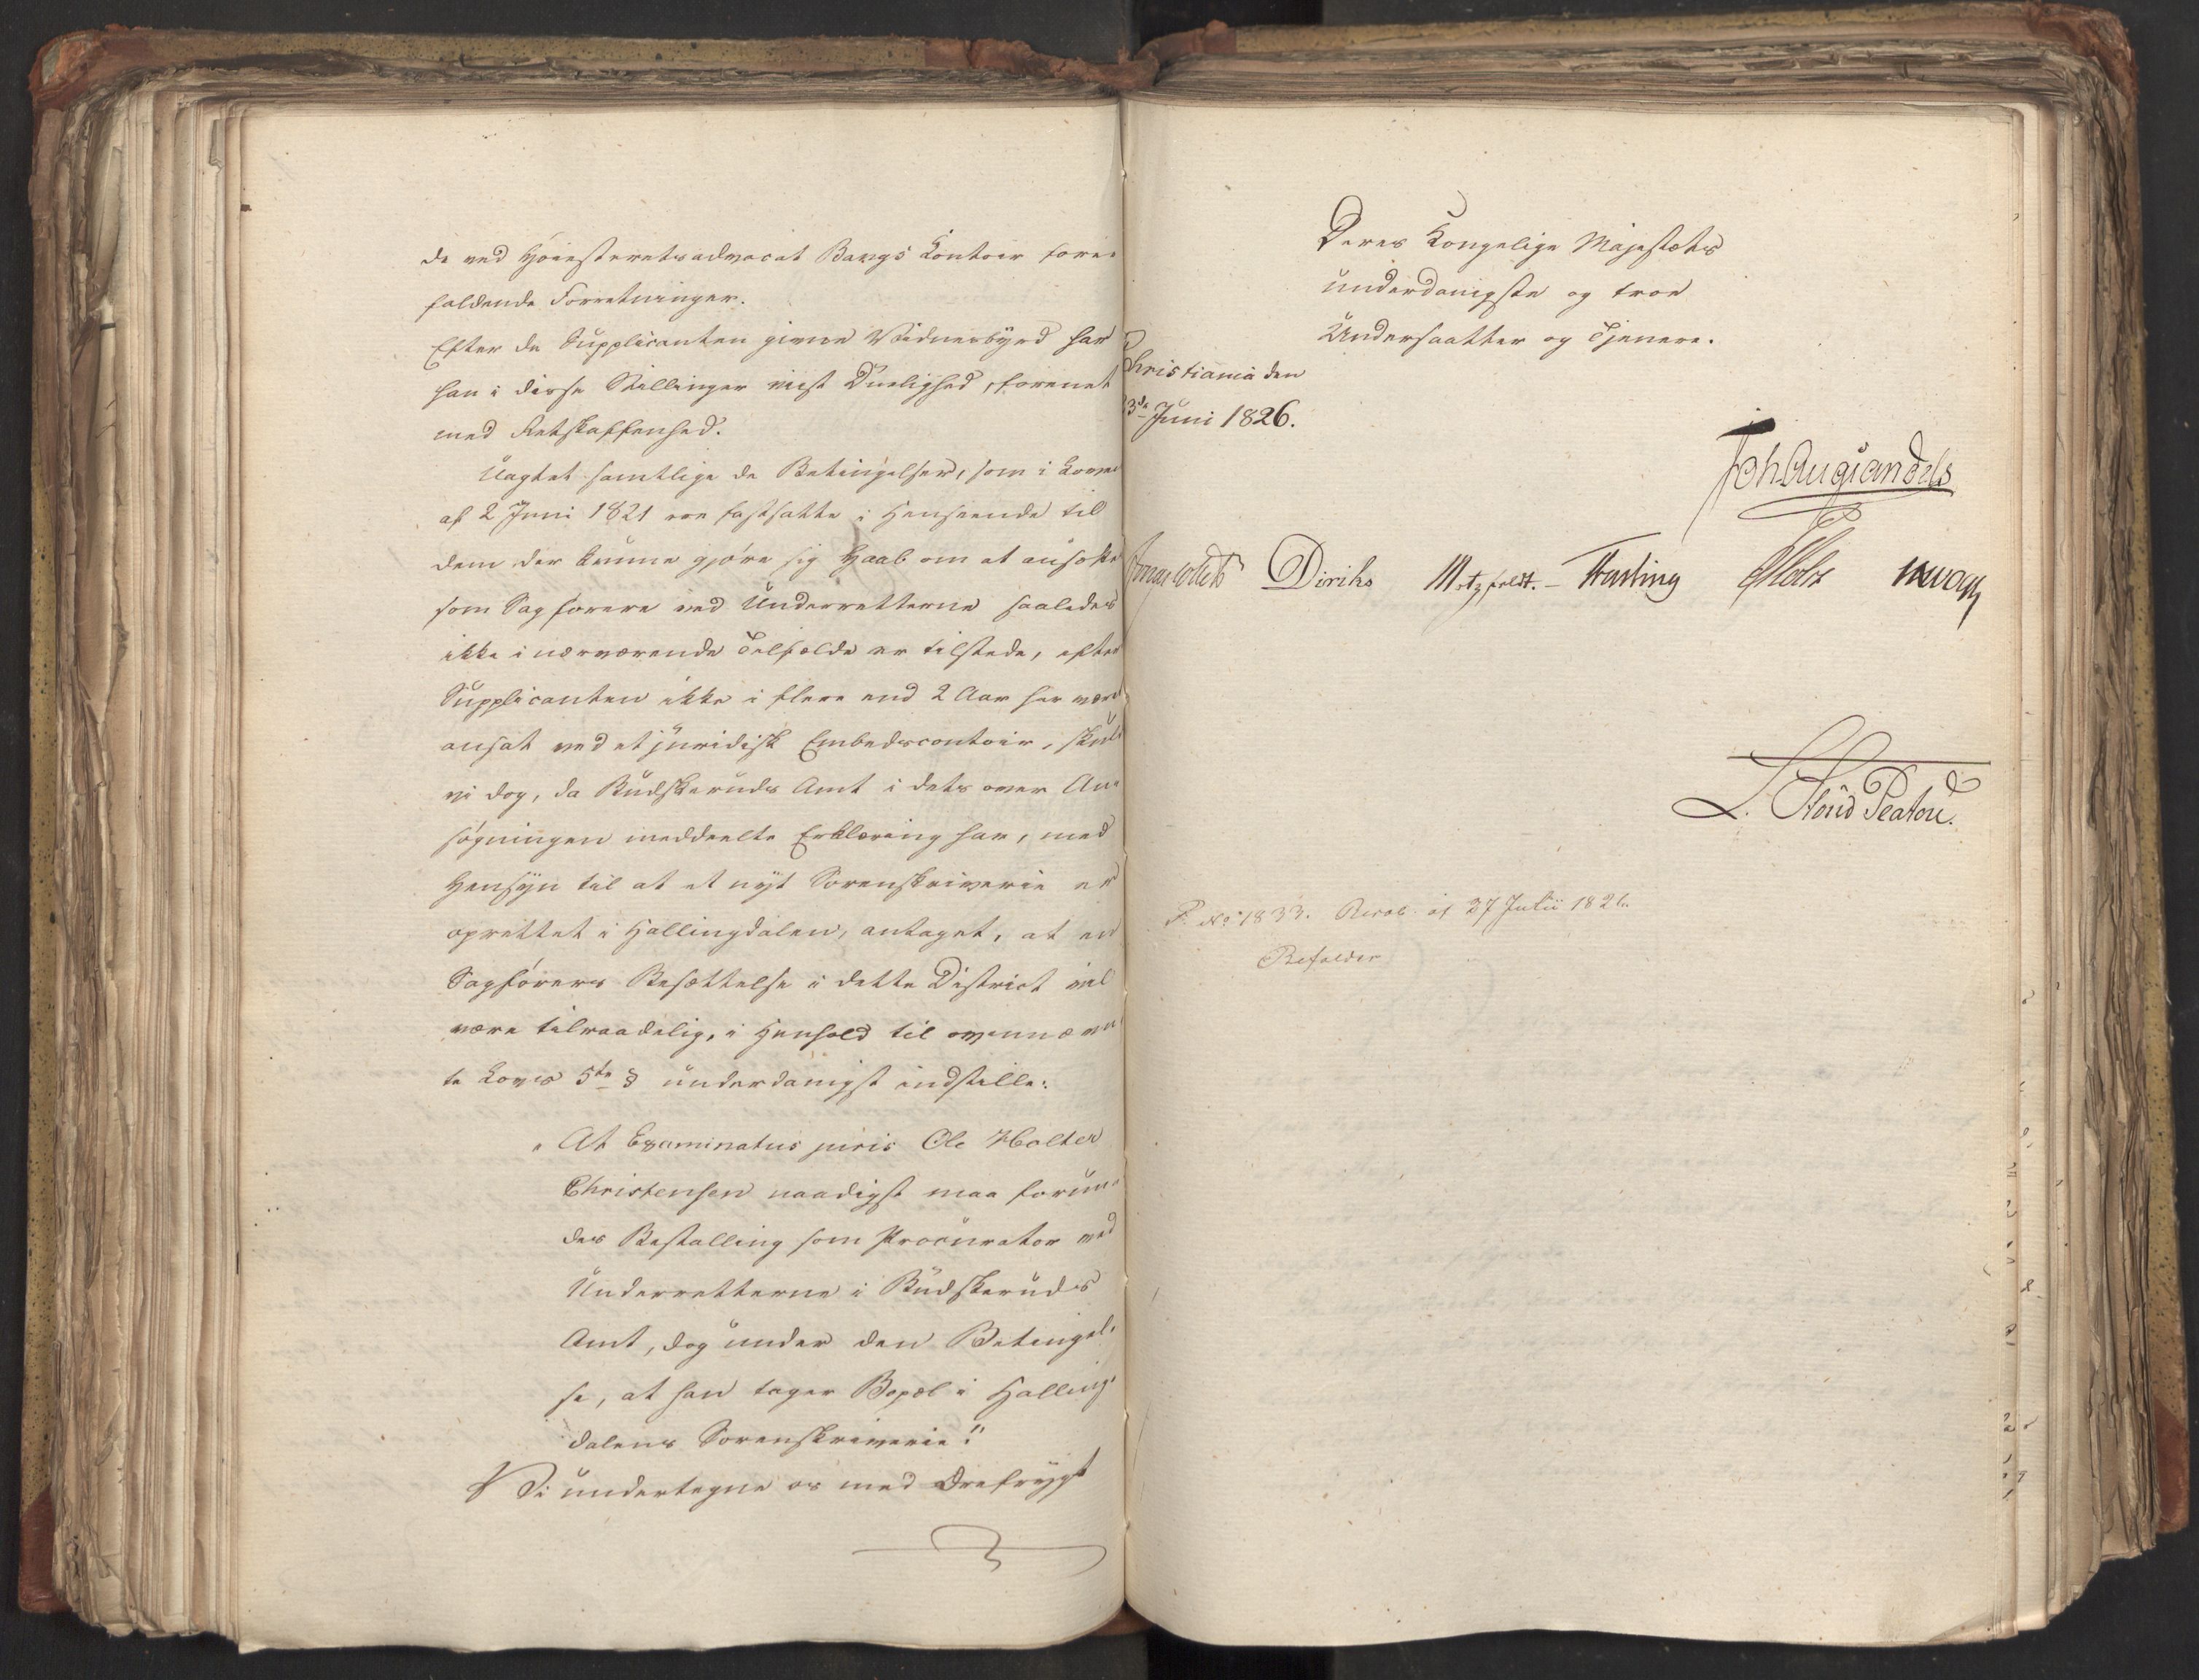 de ved Høiesteretsadvocat Bangs Kontoir fore-
faldende Forretninger.
Efter de Supplicanten givne Vidnesbyrd har
han i disse Stillinger viist Duelighed, forenet
med Retskaffenhed.
Uagtet samtlige de Betingelser, som i Loven
af 2 Juni 1821 ere fastsatte i Henseende til
dem der kunne gjøre sig Haab om at ansættes
som Sagførere ved Underretterne saaledes
ikke i nærværende Tilfælde er tilstede, efter
Supplicanten ikke i flere end 2 Aar har været
ansat ved et juridisk Embedscontoir, skul
vi dog, da Budskeruds Amt i dets over An-
søgningen meddeelte Erklæring har, med
Hensyn til at et nyt Sorenskriverie er
oprettet i Hallingdalen, antaget, at en
Sagførers Besættelse i dette District vil
være tilraadelig, i Henhold til ovennævn
te Lovs 5te § underdanigst indstille:
"At Examinatus juris Ole Holter
Christensen naadigst maa forun-
des Bestalling som Procurator ved
Underretterne i Budskeruds
Amt, dog under den Betingel-
se, at han tager Bopæl i Halling-
dalens Sorenskriverie."
Vi undertegne os med Ærefrygt
Deres Kongelige Majestæts
underdanigste og troe
Undersaatter og Tjenere.
Christiania den
3de Juni 1826.
Joh Aug Sandels
Diriks Motzfeldt. Treschow
P. No 1833. Resol. af 27 Julii 1826.
Bifaldes